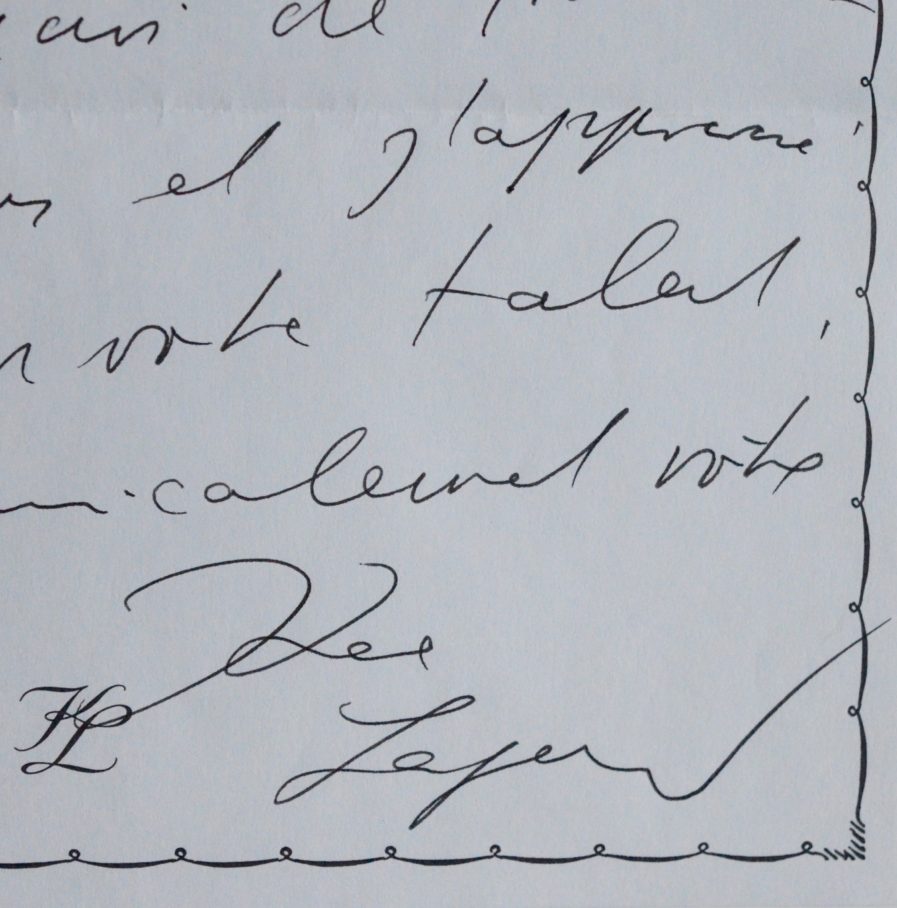 de
et j'apprécie
votre talent,
micalement votre
Karl
KL Lagerfeld